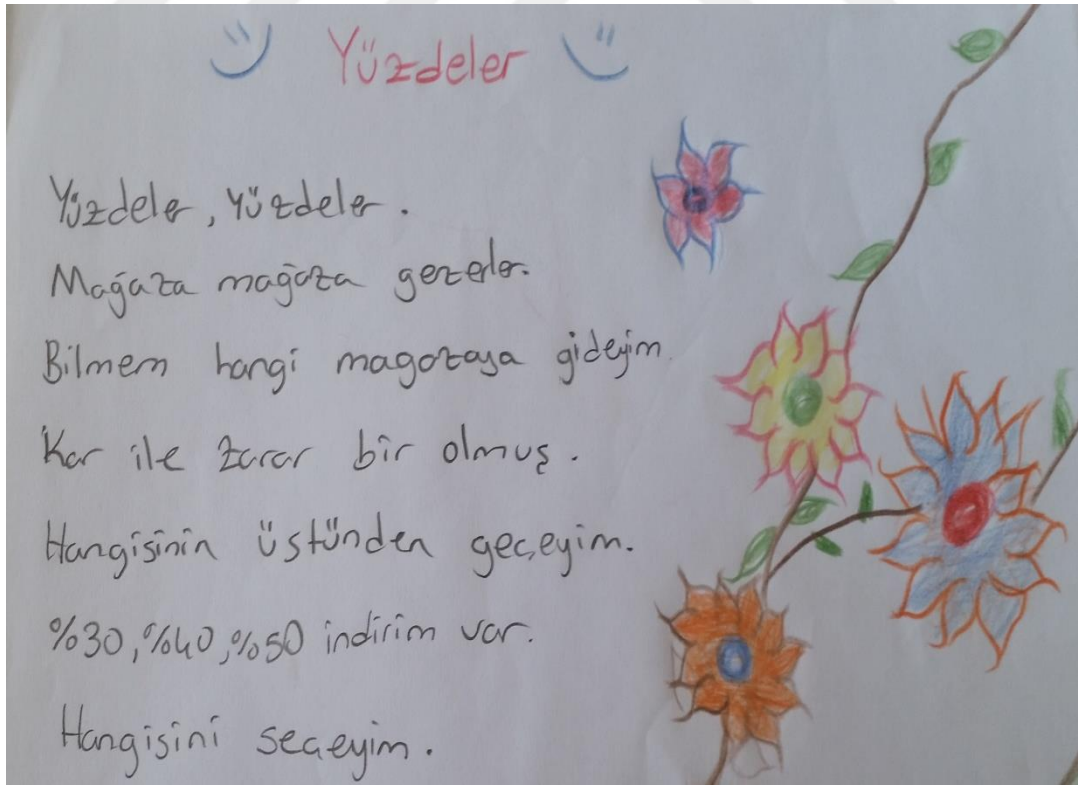 Yüzdeler
Yüzdeler, yüzdeler.
Mağaza mağaza gezerler.
Bilmem hangi magazaya gideyim.
Kar ile zarar bir olmuş.
Hangisinin üstünden geçeyim.
%30, %40, %50 indirim var.
Hangisini seçeyim.